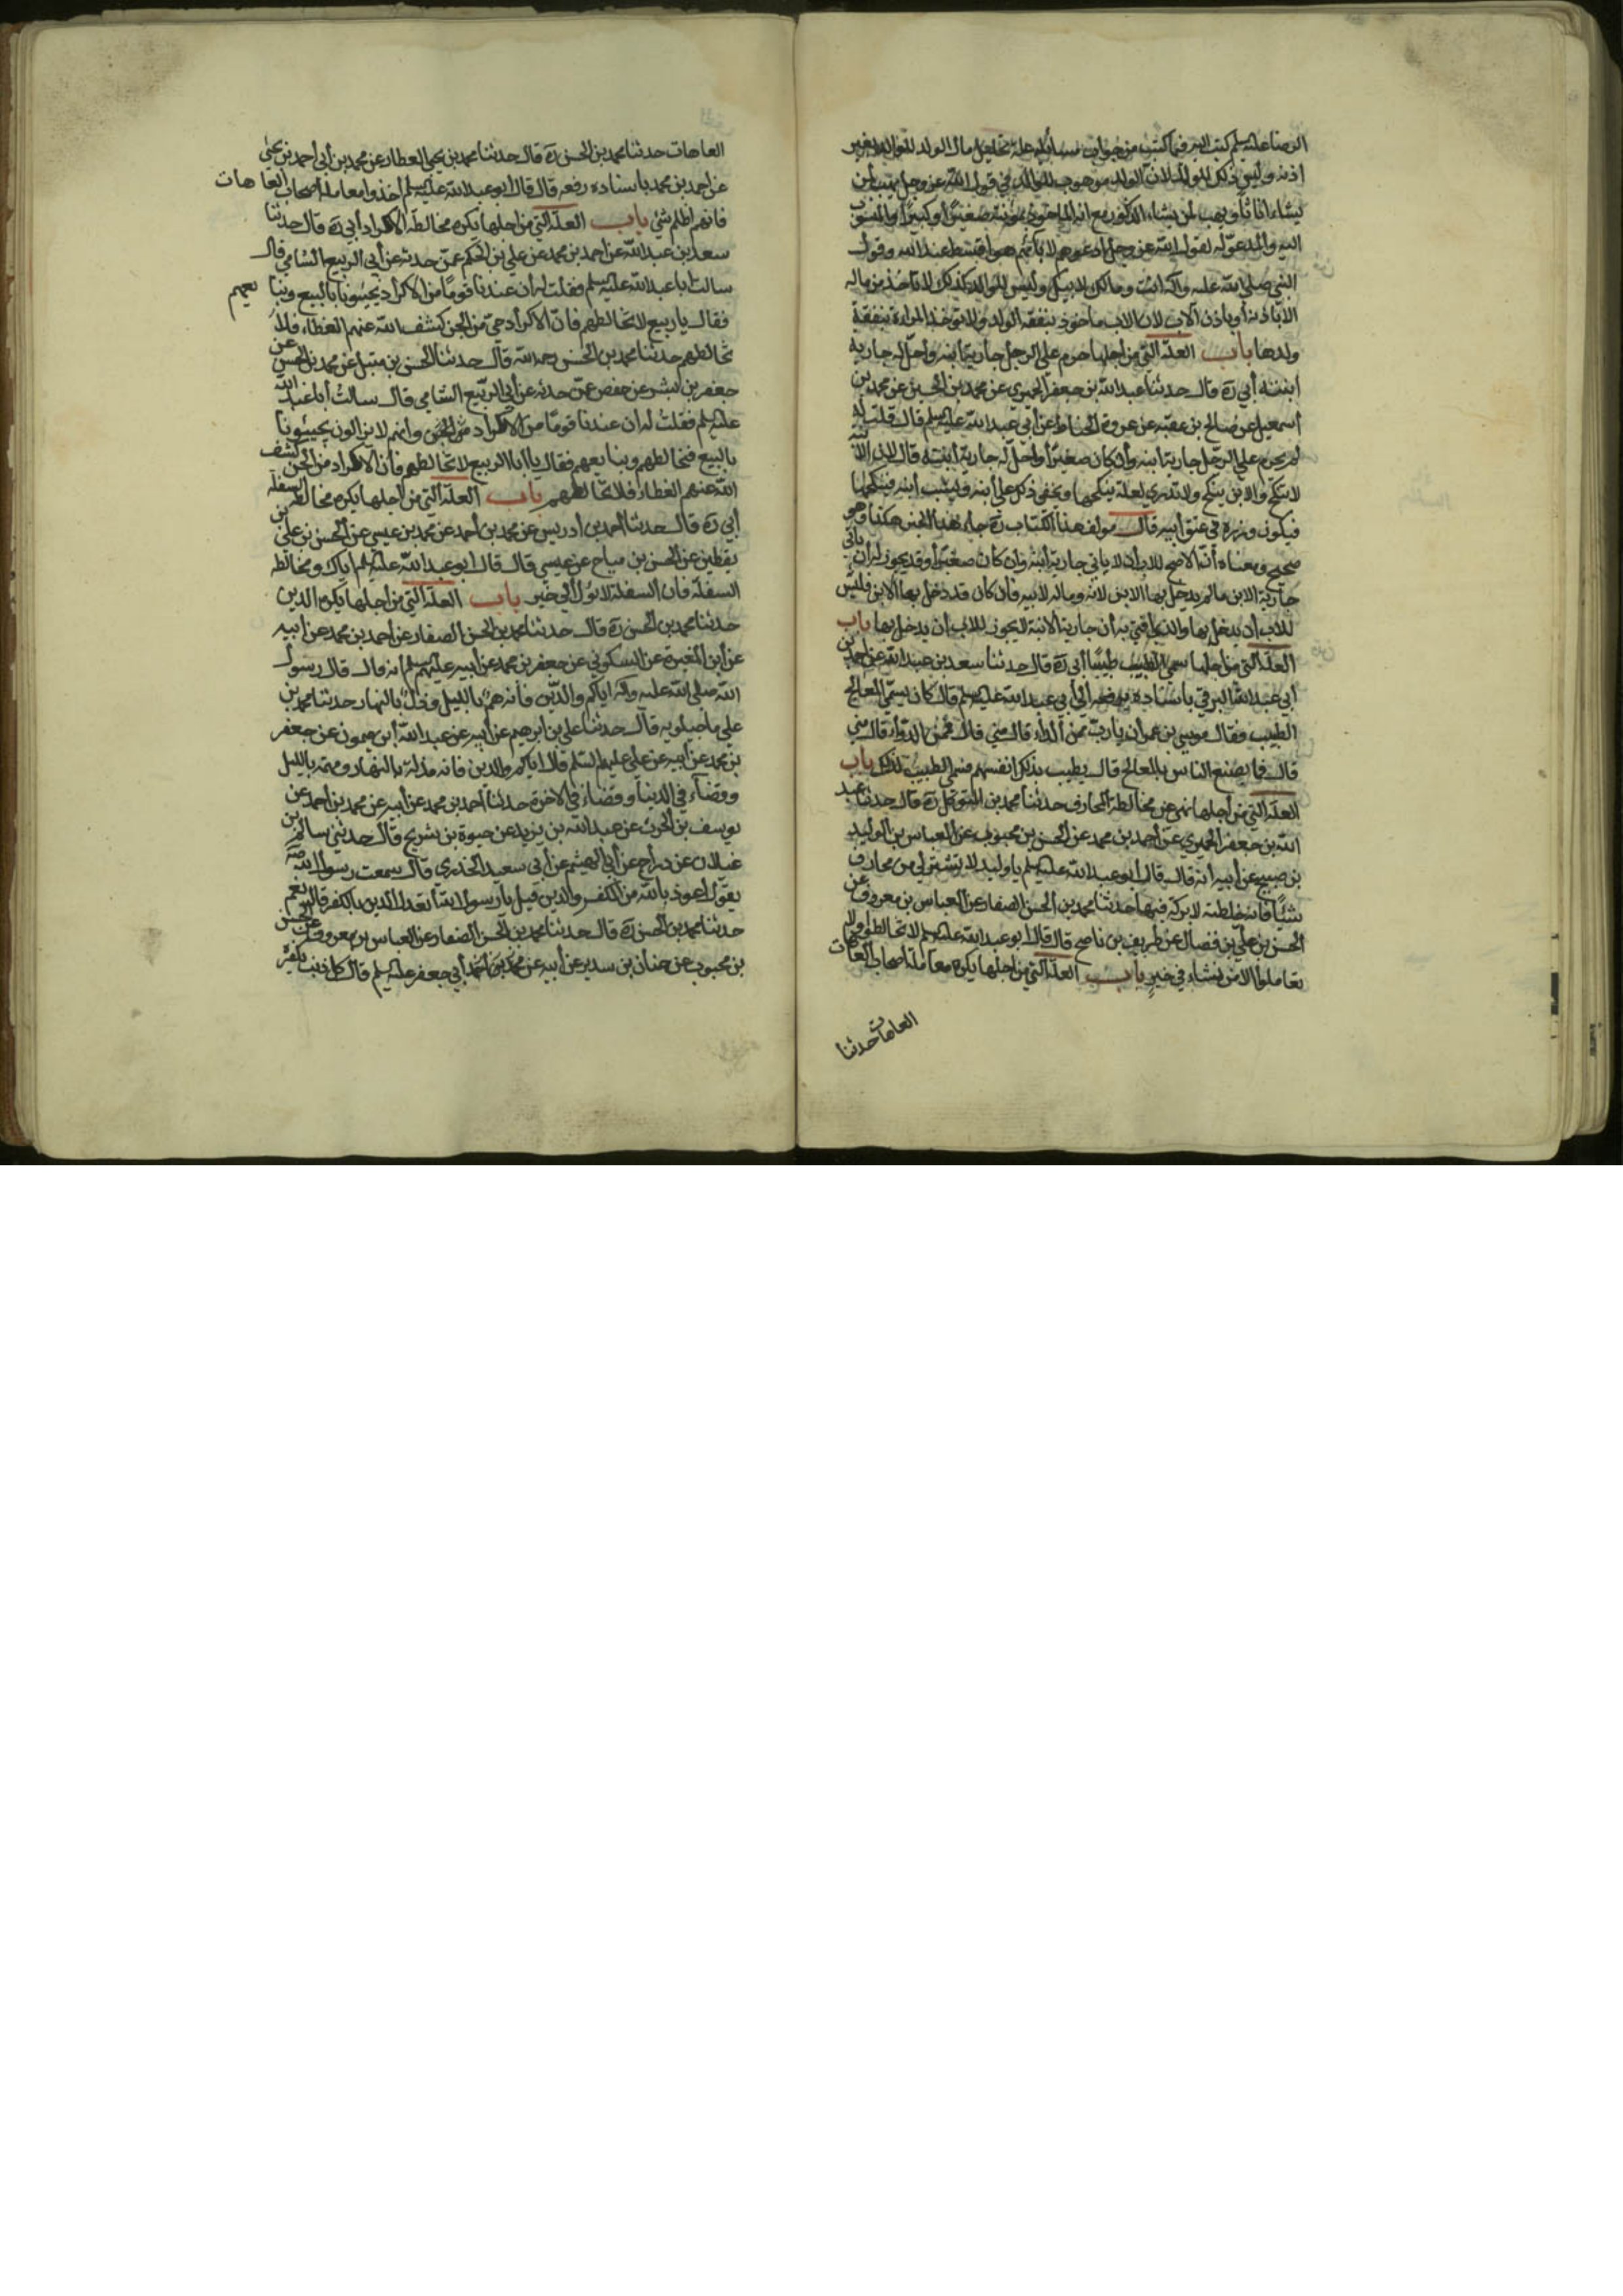 الرضا عليه السلم كتب اليه فيما كتب من جواب مسائله علة تحليل مال الولد للوالد بغير
اذنه وليس ذلك للولد لان الولد موهوب للوالد في قول الله عز وجل يهب لمن
يشاء اناثا ويهب لمن يشاء الذكور مع انه الماخوذ بمؤنته صغيرا وكبيرا والمنسوب
اليه والمدعو له لقول الله عز وجل ادعوهم لابائهم هو اقسط عند الله وقول
النبي صلى الله عليه واله انت ومالك لابيك وليس للوالدة كذلك لا تاخذ من ماله
الا باذنه أو باذن الاب لان الاب ماخوذ بنفقة الولد ولا تؤخذ المراة بنفقة
ولدها باب العلة التي من اجلها حرم على الرجل جارية ابنه واحل له جارية
ابنته أبي ره قال حدثنا عبد الله بن جعفر الحميري عن محمد بن الحسين عن محمد بن
أسمعيل عن صالح بن عقبه عن عروة الحناط عن أبي عبد الله عليه السلم قال قلت له
لم يحرم على الرجل جارية ابنه وأن كان صغيرا واحل له جارية ابنته قال لان الابنة
لا تنكح والابن ينكح ولا تدري لعله ينكحها ويخفي ذلك على أبنه ويشب ابنه فينكحها
فيكون وزره في عنق ابيه قال مولف هذا الكتاب ره جاء هذا الخبر هكذا وهو
صحيح ومعناه أن الاصلح للاب أن لا ياتي جارية أبنه وان كان صغيرا وقد يجوز له أن ياتي
جارية الابن ما لم يدخل بها الابن لانه وماله لابيه فأن كان قد دخل بها الابن فليس
للاب أن يدخل بها والذي افتي به أن جارية الابنة لا يجوز للاب ان يدخل بها باب
العلة التي من اجلها سمي الطبيب طبيبا أبي ره قال حدثنا سعد بن عبد الله عن احمد بن
أبي عبد الله البرقي باسناده يرفعه ألى أبي عبد الله عليه السلم قال كان يسمى المعالج
الطبيب فقال موسى بن عمران يا رب ممن الداء قال مني قال فممن الدواء قال مني
قال فما يصنع الناس بالمعالج قال يطيب بذلك انفسهم فسمي الطبيب لذلك باب
العلة التي من أجلها نهي عن مخالطة المحارف حدثنا محمد بن المتوكل ره قال حدثنا عبد
الله بن جعفر الحميري عن أحمد بن محمد عن الحسن بن محبوب عن العباس بن الوليد
بن صبيح عن أبيه أنه قال قال أبو عبد الله عليه السلم يا وليد لا تشتر لي من محارف
شيئا فان خلطته لا بركة فيها حدثنا محمد بن الحسن الصفار عن العباس بن معروف عن
الحسن بن علي بن فضال عن ظريف بن ناصح قال قال ابو عبد الله عليه السلم لا تخالطوا ولا
تعاملوا الا من نشاء في خير باب العلة التي من اجلها يكره معاملة اصحاب العاهات
العاهات حدثنا
العاهات حدثنا محمد بن الحسن ره قال حدثنا محمد بن يحيى العطار عن محمد بن أبي احمد بن يحيى
عن احمد بن محمد باسناده رفعه قال قال ابو عبد الله عليه السلم احذروا معاملة اصحاب العاهات
فانهم اظلم شئ باب العلة التي من اجلها يكره مخالطة الاكراد أبي ره قال حدثنا
سعد بن عبد الله عن احمد بن محمد عن علي بن الحكم عمن حدثه عن أبي الربيع الشامي قال
سالت ابا عبد الله عليه السلم فقلت له أن عندنا قوما من الاكراد يجيئونا بالبيع ونبايعهم
فقال يا ربيع لا تخالطهم فان الاكراد حي من الجن كشف الله عنهم الغطاء فلا
تخالطهم حدثنا محمد بن الحسن رحمه الله قال حدثنا الحسن بن متيل عن محمد بن الحسن عن
جعفر بن بشير عن حفص عمن حدثه عن أبي الربيع الشامي قال سالت أبا عبد الله
عليه السلم فقلت له ان عندنا قوما من الاكراد من الجن وانهم لا يزالون يجيئونا
بالبيع فنخالطهم ونبايعهم فقال يا أبا الربيع لا تخالطهم فأن الاكراد من الجن كشف
الله عنهم الغطاء فلا تخالطهم باب العلة التي من اجلها يكره مخالطة السفلة
أبي ره قال حدثنا أحمد بن ادريس عن محمد بن أحمد عن محمد بن عيسى عن الحسن بن علي بن
يقطين عن الحسن بن مياح عن عيسى قال قال ابو عبد الله عليه السلم اياك ومخالطة
السفلة فان السفلة لا تول الى خير باب العلة التي من اجلها يكره الدين
حدثنا محمد بن الحسن ره قال حدثنا محمد بن الحسن الصفار عن احمد بن محمد عن ابيه
عن أبن المغيرة عن السكوني عن جعفر بن محمد عن أبيه عليهم السلم انه قال قال رسول
الله صلى الله عليه واله اياكم والدين فأنه هم بالليل وذل بالنهار حدثنا محمد بن
علي ماجيلويه قال حدثنا علي بن ابرهيم عن أبيه عن عبد الله أبن ميمون عن جعفر
بن محمد عن ابيه عن علي عليهم السلم قال اياكم والدين فانه مذلة بالنهار ومهمة بالليل
وقضاء في الدنيا وقضاء في الاخرة حدثنا احمد بن محمد عن أبيه عن محمد بن احمد عن
يوسف بن الحرث عن عبد الله بن يزيد عن حيوة بن شريح قال حدثني سالم بن
غيلان عن دراج عن أبي الهيثم عن أبي سعيد الخدري قال سمعت رسول الله صه
يقول اعوذ بالله من الكفر والدين قيل يا رسول الله أتعدل الدين بالكفر قال نعم
حدثنا محمد بن الحسن ره قال حدثنا محمد بن الحسن الصفار عن العباس بن معروف عن الحسن
بن محبوب عن حنان بن سدير عن أبيه عن أبي جعفر عليه السلم قال كل ذنب يكفره